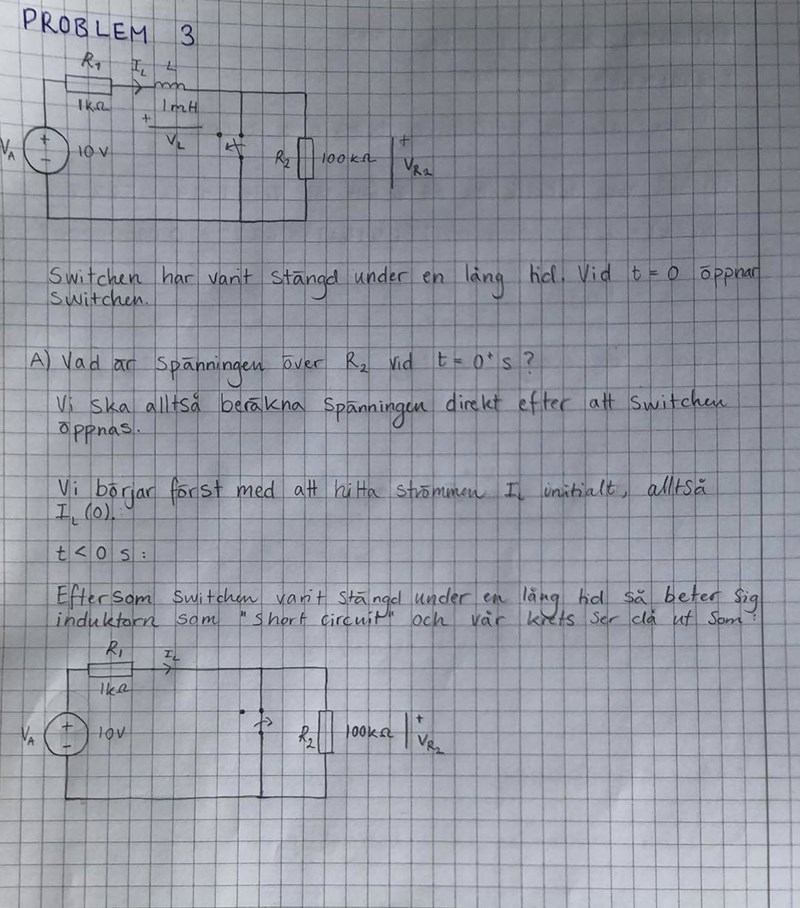 PROBLEM 3
R1 IL L
1kΩ 1mH
+ VL
VA + - 10V R2 100kΩ + VR2
Switchen har varit stängd under en lång tid. Vid t = 0 öppnar
switchen.
A) Vad är spänningen över R2 vid t = 0⁺ s ?
Vi ska alltså beräkna spänningen direkt efter att switchen
öppnas.
Vi börjar först med att hitta strömmen IL initialt, alltså
IL (0).
t < 0 s :
Eftersom switchen varit stängd under en lång tid så beter sig
induktorn som "short circuit" och vår krets ser då ut som:
R1 IL
1kΩ
VA + - 10V R2 100kΩ + VR2